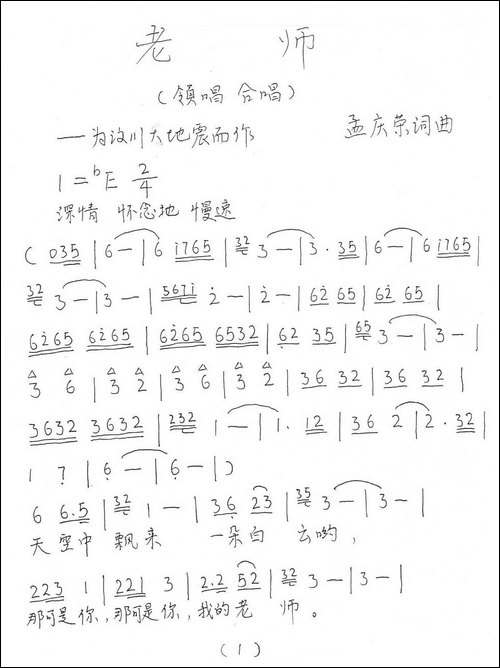 老 师
(领唱 合唱)
——为汶川大地震而作 孟庆荣词曲
1=ᵇE 2/4
深情 怀念地 慢速
( 035 | 6 — | 6 1̇765 | 32 3 — | 3 · 35 | 6 — | 6 1̇765 |
32 3 — | 3 — | 5671̇ 2̇ — | 2̇ — | 62̇ 65 | 62̇ 65 |
62̇65 62̇65 | 62̇65 6532 | 62 35 | 65 3 — | 3 — |
3 6 | 3 2 | 3 6 | 3 2 | 36 32 | 36 32 |
3632 3632 | 232 1 — | 1 · 12 | 36 2 | 2 · 32 |
1 7̣ | 6̣ — | 6̣ — | )
6 6·5 | 32 1 — | 36 23 | 35 3 — | 3 — |
天空中 飘来 一朵白 云哟,
223 1 | 221 3 | 2·2 52 | 32 3 — | 3 — |
那可是你,那可是你,我的老 师。
(1)